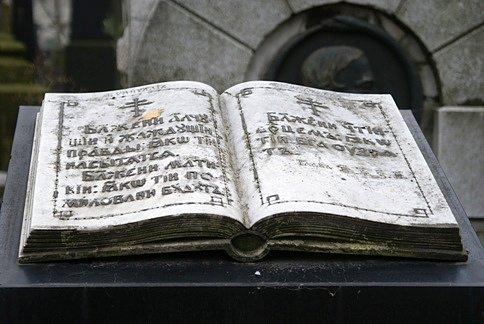 БЛАЖЕНИ АЛЧУ
ЩІИ И ЖАЖДУЩІИ
ПРАВДЫ: ЯКѠ ТІИ
НАСЫТЯТСЯ
БЛАЖЕНИ МЛТИ
ВІИ: ЯКѠ ТІИ ПО
МИЛОВАНИ БУДУТЪ
БЛАЖЕНИ ЧТІИ
СРЦЕМЪ: ЯКѠ
ТІИ БГА УЗРЯ
ТЪ